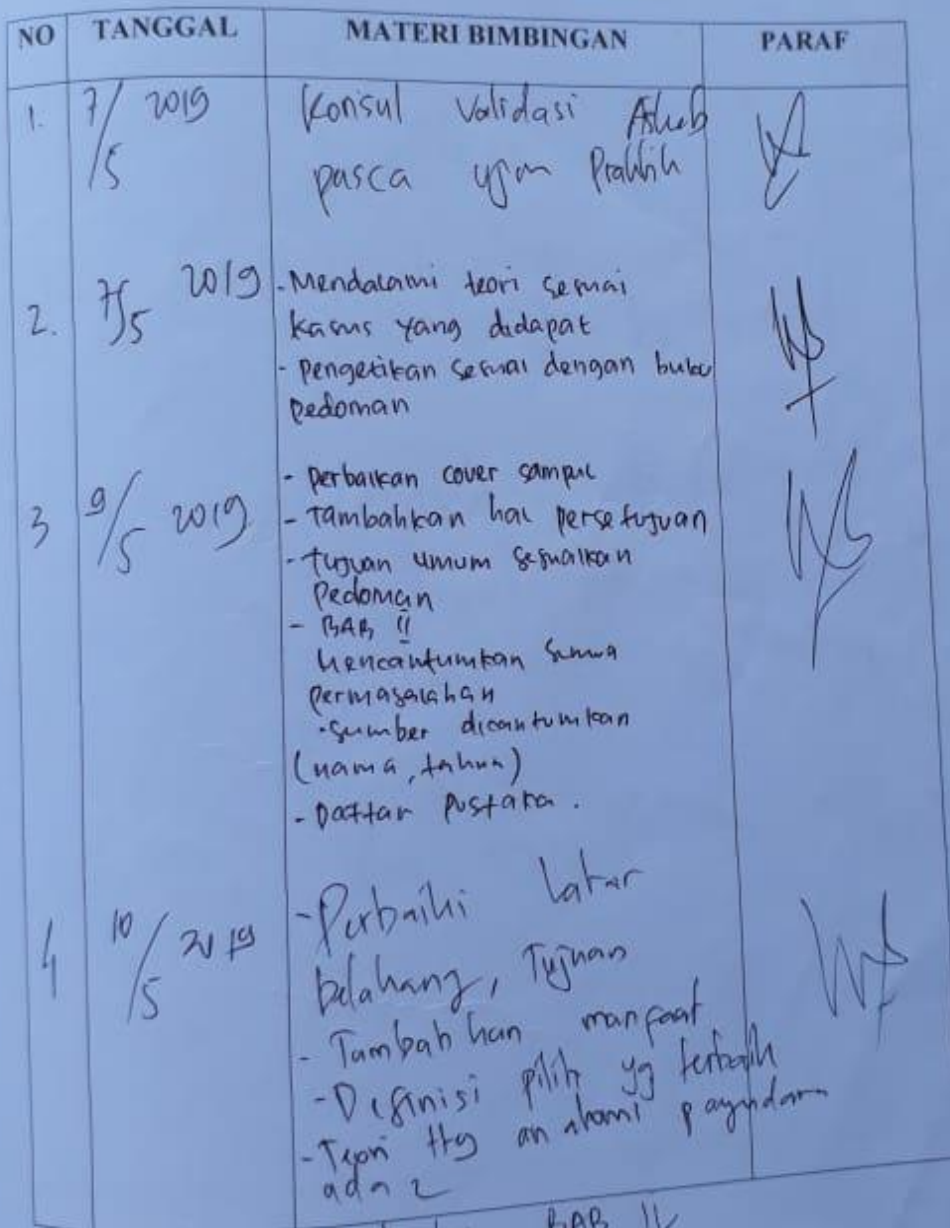 NO TANGGAL MATERI BIMBINGAN PARAF
1. 7/5 2019 Konsul Validasi Askeb
pasca ujian Praktik
2. 7/5 2019 - Mendalami teori sesuai
kasus yang didapat
- pengetikan sesuai dengan buku
pedoman
3 9/5 2019 - perbaikan cover sampul
- Tambahkan hal persetujuan
- tujuan umum sesuaikan
pedoman
- BAB II
Mencantumkan semua
permasalahan
• Sumber dicantumkan
(nama, tahun)
- Daftar Pustaka.
4 10/5 2019 - Perbaiki latar
belakang, Tujuan
- Tambahkan manfaat
- Definisi pilih yg terbaik
- Teori ttg anatomi payudara
ada 2
BAB II